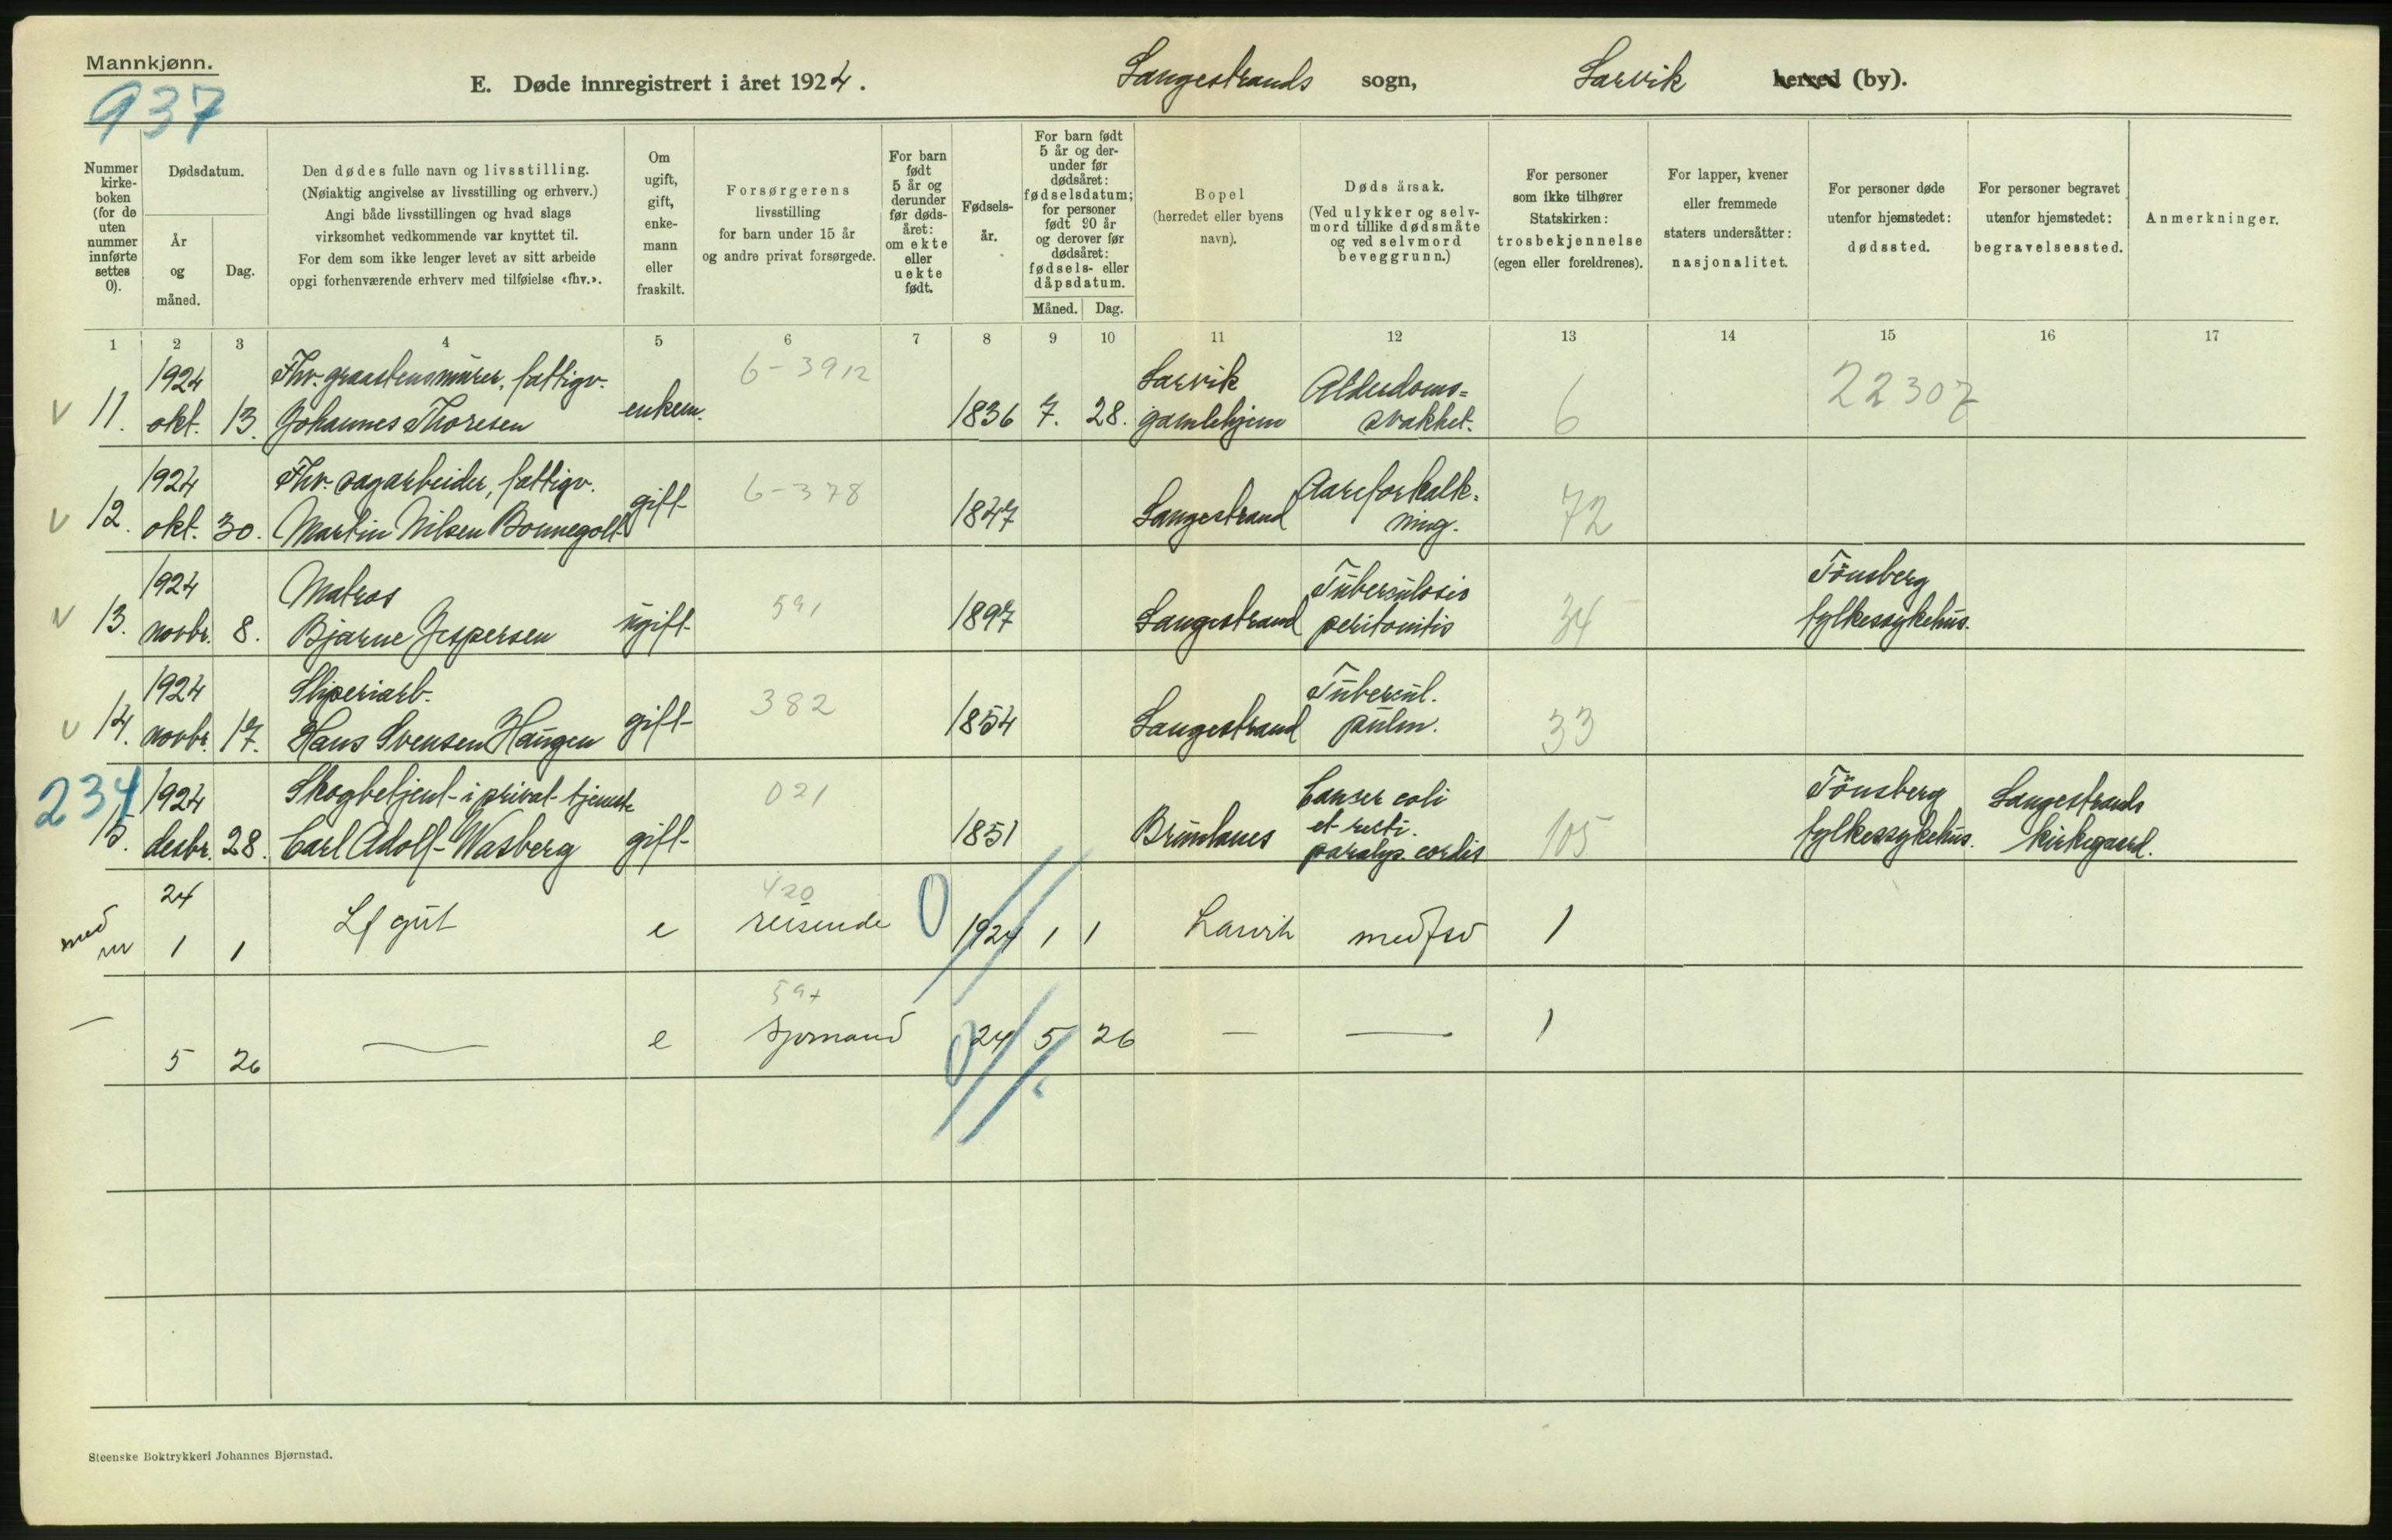 Mannkjønn.
937
E. Døde innregistrert i året 1924.
Langestrands sogn, Larvik herred (by).
Nummer kirke-boken (for de uten nummer innførte settes 0).
Dødsdatum.
År og måned.
Dag.
Den dødes fulle navn og livsstilling.
(Nøiaktig angivelse av livsstilling og erhverv.)
Angi både livsstillingen og hvad slags
virksomhet vedkommende var knyttet til.
For dem som ikke lenger levet av sitt arbeide
opgi forhenværende erhverv med tilføielse «fhv.».
Om ugift, gift, enke-mann eller fraskilt.
Forsørgerens
livsstilling
for barn under 15 år
og andre privat forsørgede.
For barn født 5 år og derunder før døds-året: om ekte eller uekte født.
Fødsels-år.
For barn født 5 år og der-under før dødsåret: fødselsdatum; for personer født 90 år og derover før dødsåret: fødsels- eller dåpsdatum.
Måned. Dag.
Bopel
(herredet eller byens navn).
Døds årsak.
(Ved ulykker og selv-mord tillike dødsmåte og ved selvmord beveggrunn.)
For personer som ikke tilhører Statskirken: trosbekjennelse (egen eller foreldrenes).
For lapper, kvener eller fremmede staters undersåtter: nasjonalitet.
For personer døde utenfor hjemstedet: dødssted.
For personer begravet utenfor hjemstedet: begravelsessted.
Anmerkninger.
1 2 3 4 5 6 7 8 9 10 11 12 13 14 15 16 17
1924 Fhv. graastensmurer, fattigv. 6-3912 Larvik Alderdoms- 22307
v 11. okt. 13. Johannes Thoresen enkem. 1836 7. 28. gamlehjem svakhet. 6
1924 Fhv. sagarbeider, fattigv. 6-378 Aareforkalk-
v 12. okt. 30. Martin Nilsen Bonnegolt gift 1847 Langestrand ning. 72
1924 Matros 591 Tuberculosis Tönsberg
v 13. novbr. 8. Bjarne Jespersen ugift 1897 Langestrand peritonitis 34 fylkessykehus.
1924 Sliperiarb. 382 Tubercul.
v 14. novbr. 17. Hans Svensen Haugen gift 1854 Langestrand pulm. 33
234 1924 Skogbetjent i privat tjeneste 021 Canser coli Tönsberg Langestrands
et recti.
15. desbr. 28. Carl Adolf Wasberg gift 1851 Brunlanes paralys. cordis 105 fylkessykehus. kirkegaard.
24 420
med 1 1 Lf gut e reisende 0 1924 1 1 Larvik medfsv 1
597
— 5 26 — e sjømand 0 24 5 26 — — 1
Steenske Boktrykkeri Johannes Bjørnstad.